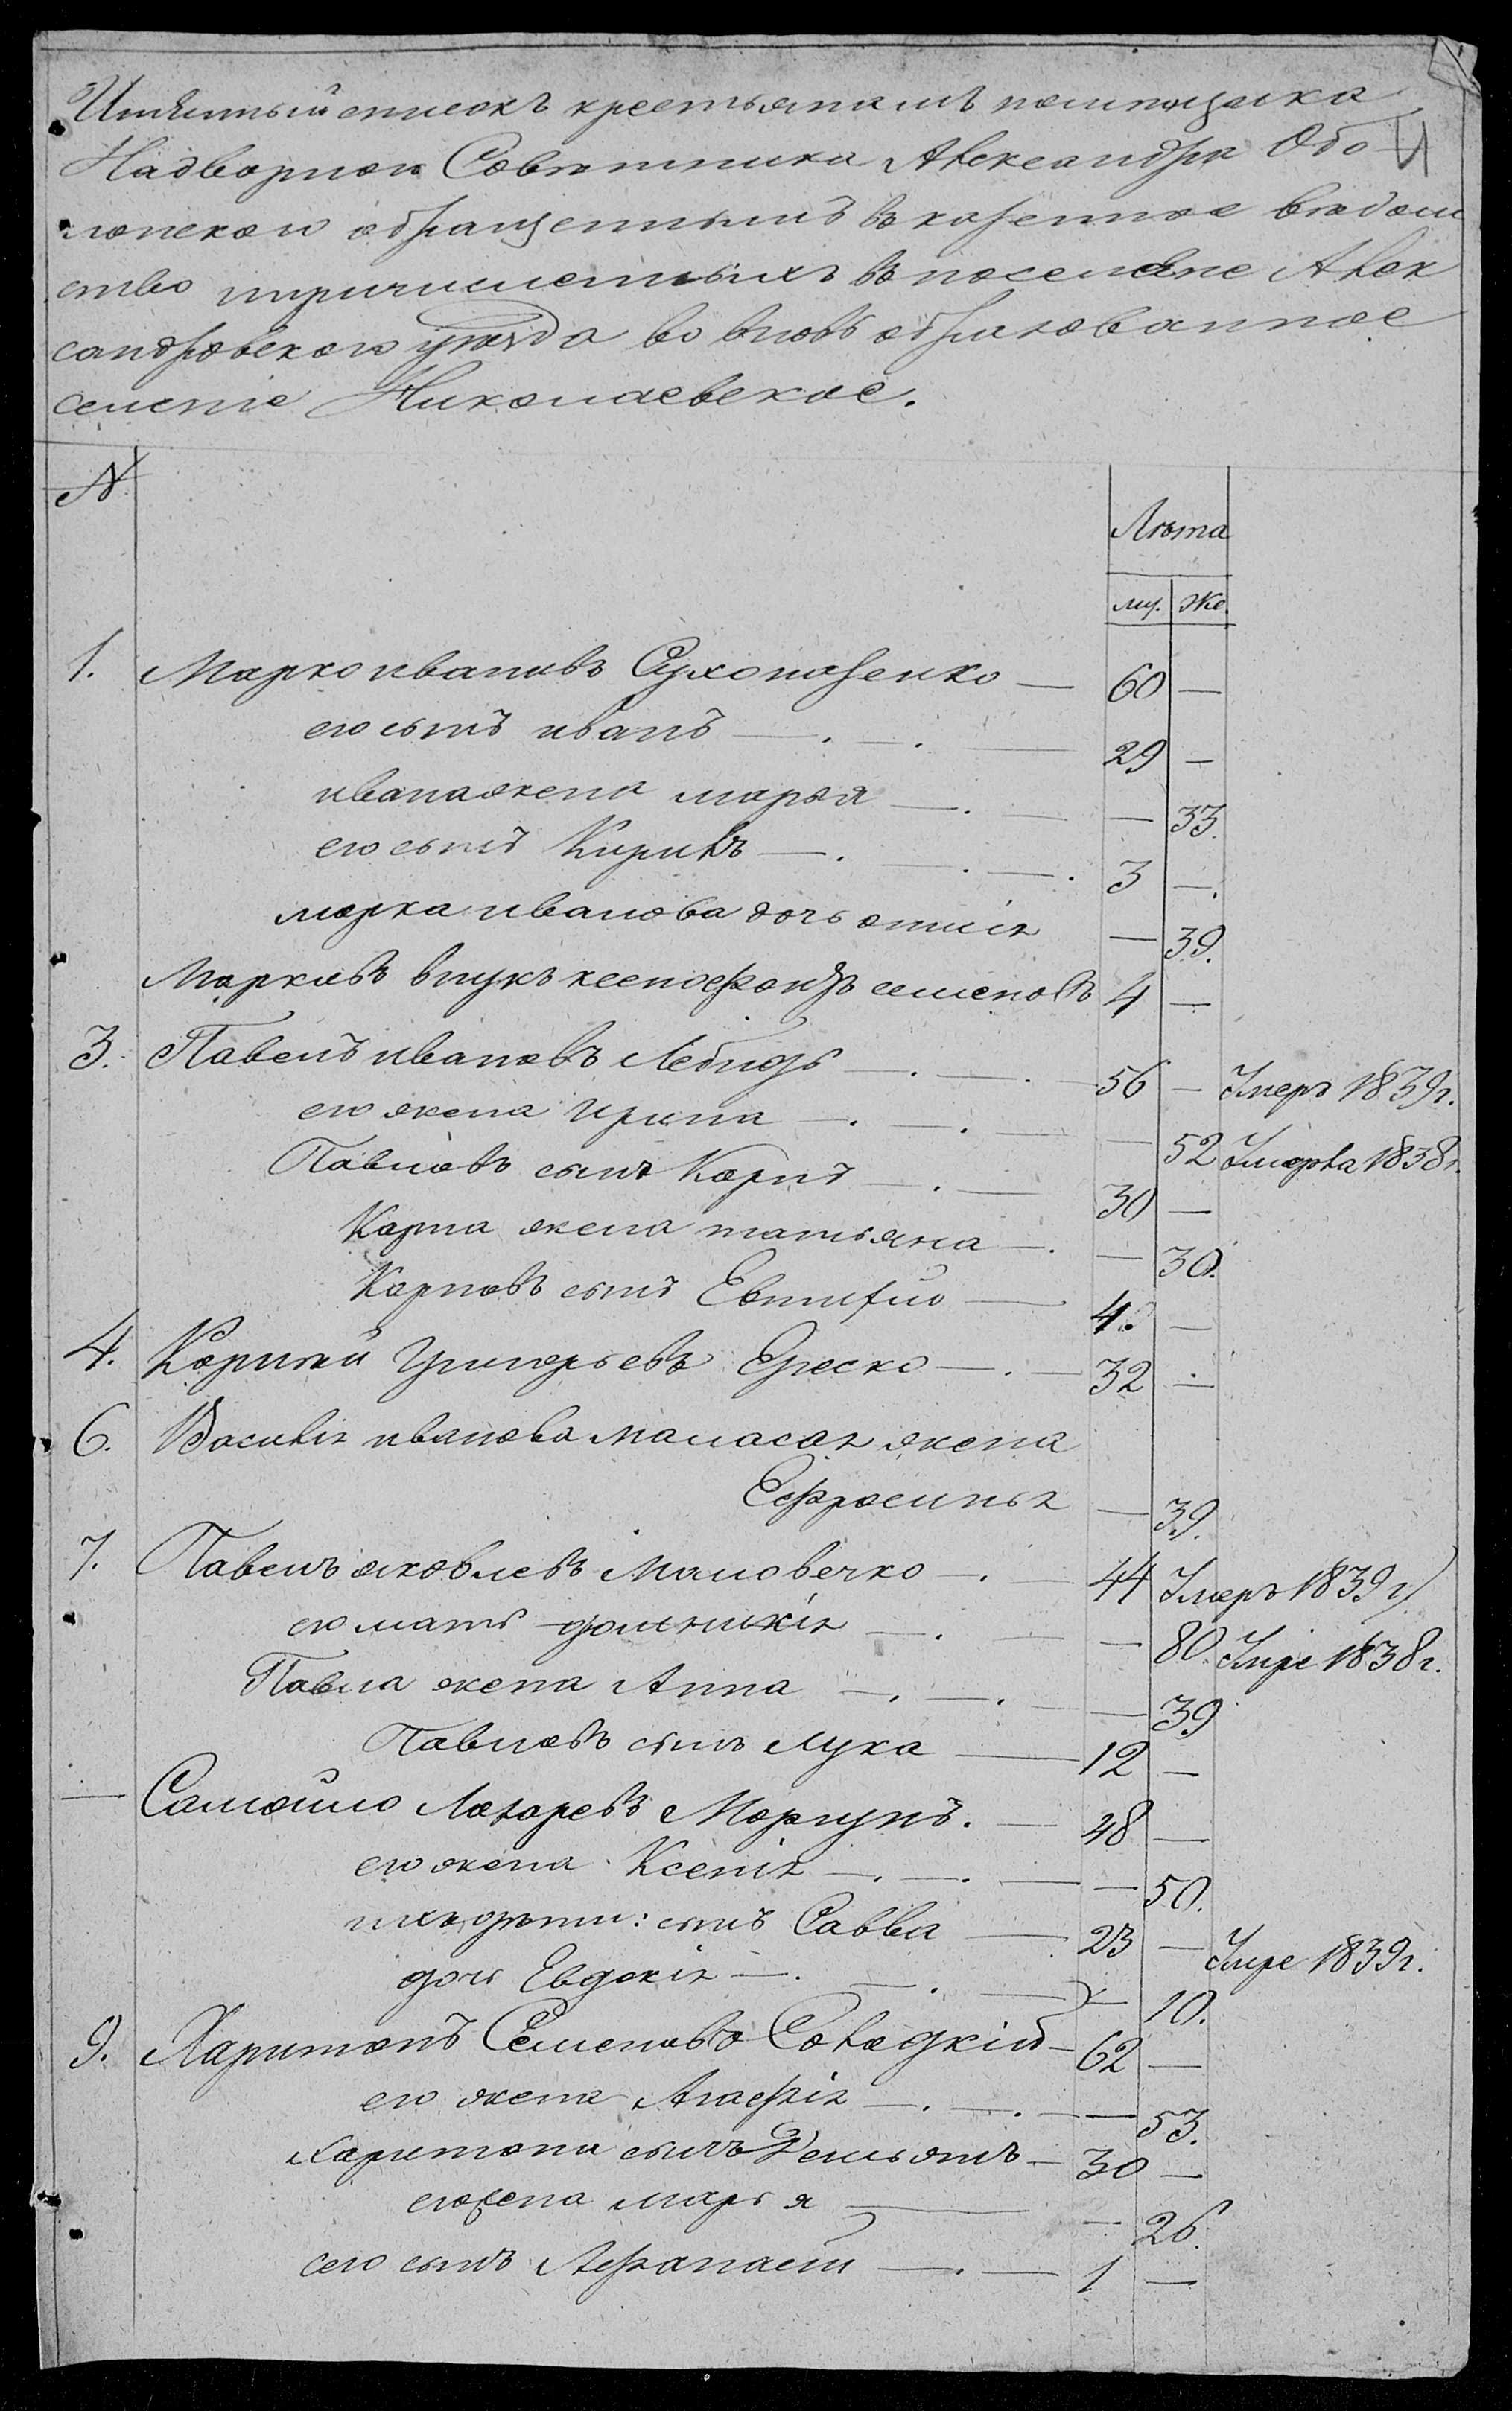 Имѣнный списокъ крестьянамъ помѣщика
Надворнаго Совѣтника Александра Обо
лонскаго обращеннымъ въ казенное вѣдом
ство причисленныхъ въ поселяне Алек
сандровскаго уѣзда во вновь образованное
селеніе Николаевское.
№
Лѣта
му. же.
1. Марко ивановъ Сухона — 60 —
его сынъ иванъ — 29 —
ивана жена марья — — 33.
его сынъ Кирилъ — 3 —
марка иванова дочь — 39.
Марковъ внукъ ксенофонтъ семеновъ 4 —
3. Павелъ ивановъ Лебидь — 56 — Умеръ 1839г.
его жена ирина — — 52 Умерла 1838г.
Павловъ сынъ Карпъ — 30 —
Карпа жена татьяна — — 30.
Карповъ сынъ Евтифій — 4. —
4. Корнѣй Григорьевъ Ереско — 32 —
6. Василія иванова жена
Ефросинья — 39.
7. Павелъ яковлевъ Маловечко — 44 Умеръ 1839 г
его мать — 80. Умре 1838г.
Павла жена Анна — — 39
Павловъ сынъ лука — 12 —
— Самойло Лазаревъ Моргунъ. — 48 —
его жена Ксенія — — 50.
ихъ дѣти: сынъ Савва — 23 — Умре 1839г.
дочь Евдокія — — 10.
9. Харитонъ Семеновъ — 62 —
его жена Агафія — — 53.
харитона сынъ Демьянъ — 30 —
его жена марья — — 26.
сего сынъ Афанасій — 1 —